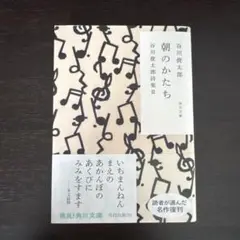 谷川俊太郎
朝のかたち
谷川俊太郎詩集 II
角川文庫
いちまんねん
まえの
あかんぼの
あくびに
みみをすます
発見!角川文庫
読者が選んだ
名作復刊